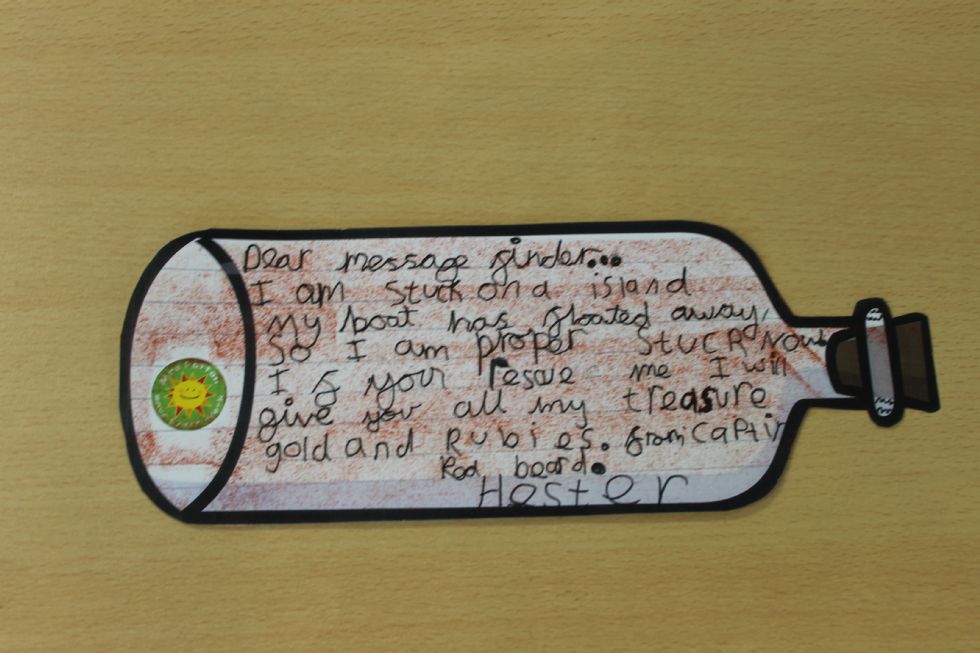 Dear message finder...
I am stuck on a island
My boat has floated away,
So I am proper stuck Now
If your rescue me I will
give you all my treasure
gold and Rubies. from captin
Red beard.
Hester